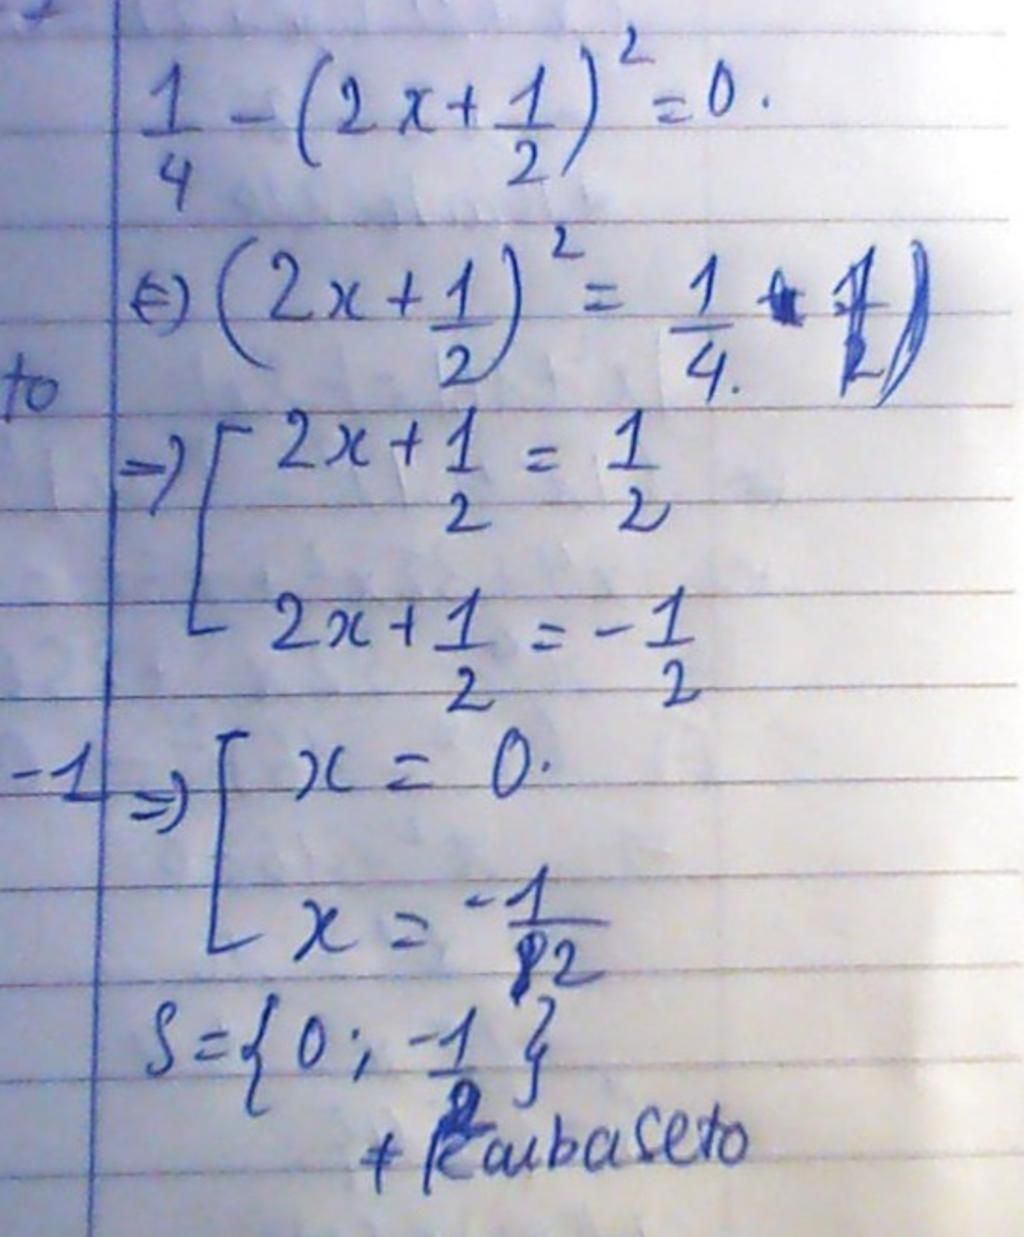 1/4 - (2x + 1/2)² = 0.
⇔ (2x + 1/2)² = 1/4.
to
⇒ [ 2x + 1/2 = 1/2
2x + 1/2 = -1/2
-1
⇒ [ x = 0.
x = -1/2
S = {0; -1/2}